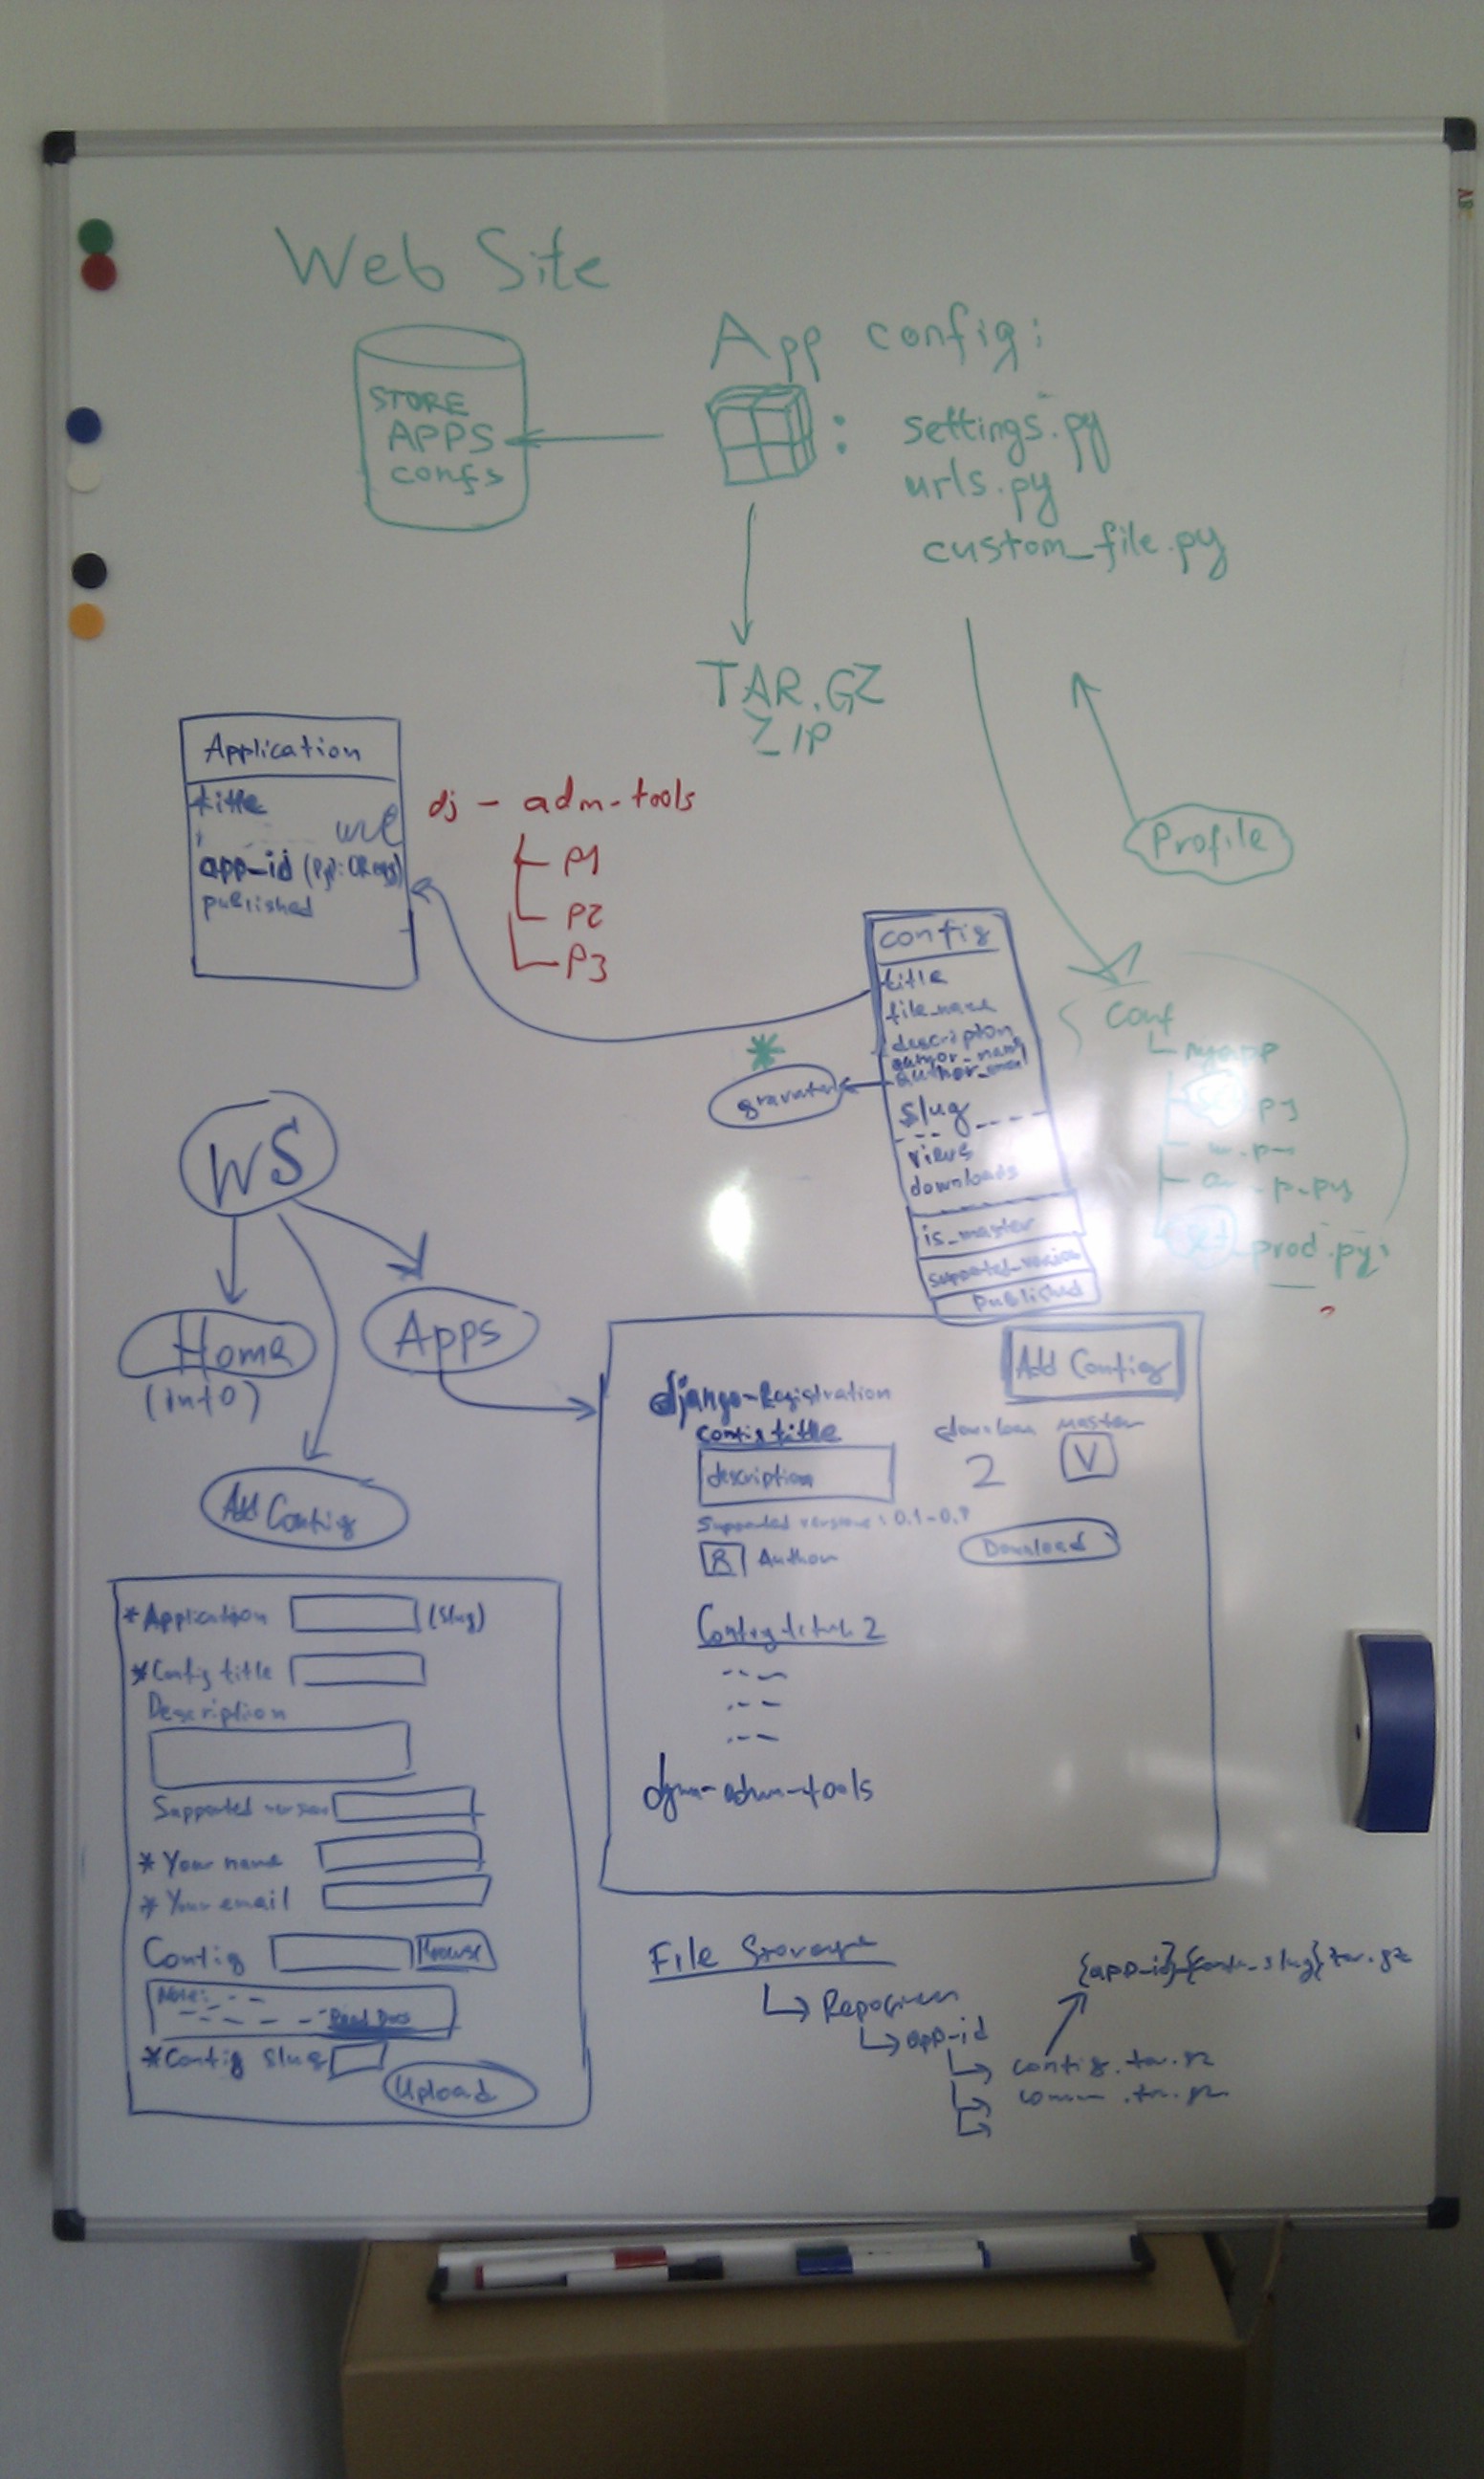 Web Site
App config:
STORE
APPS
confs
:
settings.py
urls.py
custom_file.py
TAR.GZ
ZIP
Application
title
url
app_id
published
dj - adm-tools
P1
P2
P3
Profile
config
title
file_name
description
author_name
author_email
slug
views
downloads
is_master
supported_version
published
gravatar
conf
myapp
prod.py
?
WS
Home
(into)
Apps
Add Config
Add Config
django-Registration
config title
description
master
2
V
Supported versions: 0.1-0.
R Author
Download
Config title 2
adm-tools
* Application (slug)
* Config title
Description
Supported version
* Your name
* Your email
Config Browse
Note:
Read Docs
* Config slug
Upload
File Storage
app-id
config.tar.gz
.tar.gz